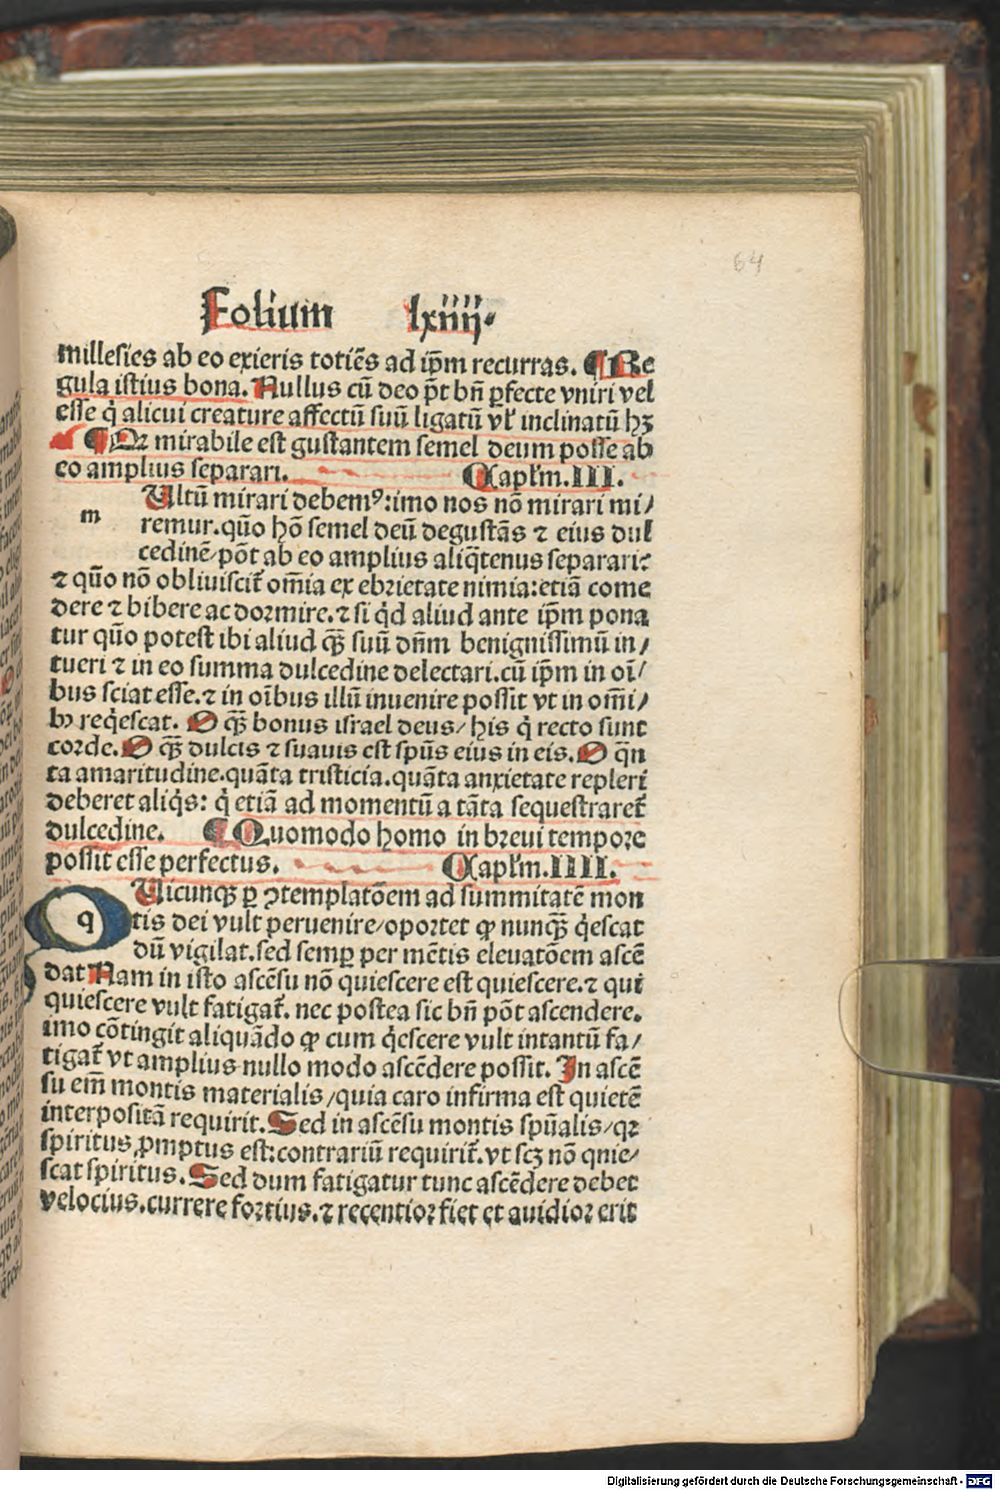 64
Folium lxiiij.
millesies ab eo exieris totiēs ad ip̄m recurras. ¶ Re
gula istius bona. Nullus cū deo p̄t bn̄ ꝑfecte vniri vel
esse q̇ alicui creature affectū suū ligatū vl̓ inclinatū hꝫ
¶ Qꝛ mirabile est gustantem semel deum posse ab
eo amplius separari. Capl̓m.III.
m Ultū mirari debemꝰ:imo nos nō mirari mi/
remur.quō hō semel deū degustās ⁊ eius dul
cedinē/pōt ab eo amplius aliq̄tenus separari:
⁊ quō nō obliuiscit᷑ om̄ia ex ebrietate nimia:etiā come
dere ⁊ bibere ac dormire.⁊ si q̇d aliud ante ip̄m pona
tur quō potest ibi aliud qꝫ̄ suū dn̄m benignissimū in/
tueri ⁊ in eo summa dulcedine delectari.cū ip̄m in oī/
bus sciat esse.⁊ in oībus illū inuenire possit vt in om̄i/
bꝰ req̇escat. O qꝫ̄ bonus israel deus/ his q̇ recto sunt
corde. O qꝫ̄ dulcis ⁊ suauis est spūs eius in eis. O qn̄
ta amaritudine.quāta tristicia.quāta anxietate repleri
deberet aliq̇s: q̇ etiā ad momentū a tāta sequestraret᷑
dulcedine. ¶ Quomodo homo in breui tempore
possit esse perfectus. Capl̓m.IIII.
q Uicunqꝫ ꝑ ꝯtemplatōem ad summitatē mon
tis dei vult peruenire/oportet ꝙ nunqꝫ̄ q̇escat
dū vigilat.sed semꝑ per mētis eleuatōem ascē
dat Nam in isto ascēsu nō quiescere est quiescere.⁊ qui
quiescere vult fatigat᷑. nec postea sic bn̄ pōt ascendere.
imo cōtingit aliquādo ꝙ cum q̇escere vult intantū fa/
tigat᷑ vt amplius nullo modo ascēdere possit. In ascē
su em̄ montis materialis/quia caro infirma est quietē
interpositā requirit. Sed in ascēsu montis spūalis/qꝛ
spiritus ꝓmptus est:contrariū requirit᷑.vt scꝫ nō qnie/
scat spiritus. Sed dum fatigatur tunc ascēdere debet
velocius.currere fortius.⁊ recentior fiet et auidior erit
Digitalisierung gefördert durch die Deutsche Forschungsgemeinschaft - DFG